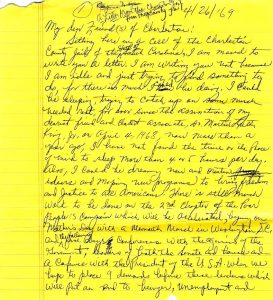 4/26/69
My dear Friend(s) of Charleston:
Sitting here in a Cell of the Charleston
County jail of South Carolina, I am moved to
write you a letter. I am writing you not because
I am idle and just trying to find something to
do, for there is much I could be doing. I could
be sleeping, trying to catch up on some much
needed rest, for ever since the assassination of my
dearest friend and Pastor Associate, Dr. Martin Luther
King, Jr. on April 4, 1968, now more than a
year ago, I have not found the time or the place
of mind to sleep more than 4 or 5 hours per day.
Also, I could be dreaming new and
ideas and new programs to bring freedom
and justice to all Americans. There is much
work to be done on the 2nd Chapter of the Poor
People's Campaign which will be
Mother's Day with a Mammoth March in Washington, D.C.
Conference with
Government, leaders of both the Senate and House and
a Conference with the President of the U.S.A. when we
hope to place 9 demands before these leaders which
will put an end to hunger, unemployment and